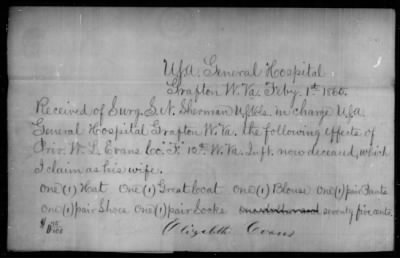 U.S.A. General Hospital
Grafton W. Va. Feby. 1st 1865.
Received of Surg. S. N. Sherman U.S. Vols. in charge U.S.A.
General Hospital Grafton W. Va. the following effects of
Priv. W. L. Evans Co. "F" 10th W. Va. Inft. now deceased, which
I claim as his wife.
One (1) Hat One (1) Great Coat One (1) Blouse One (1) pair Pants
One (1) pair Shoes One (1) pair Socks seventy five cents.
Elizabeth Evans